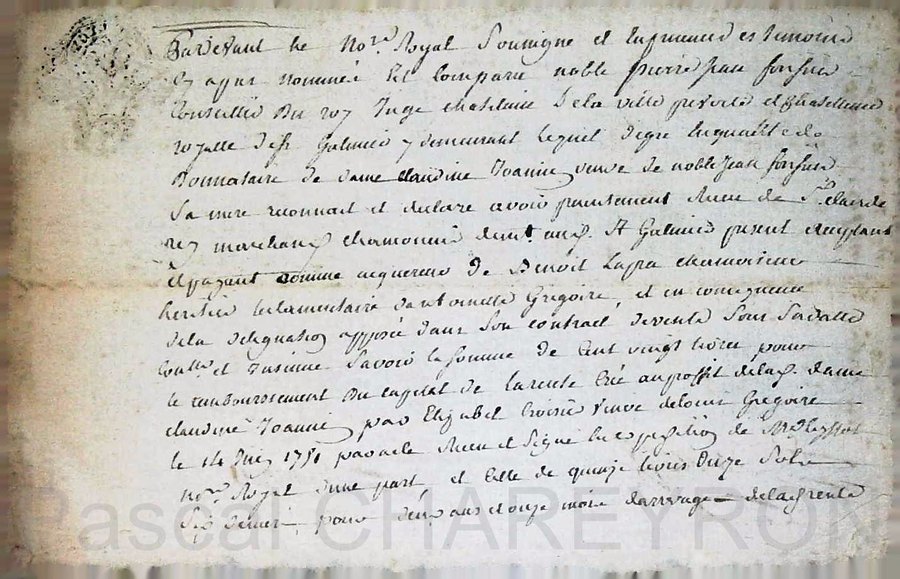 Pardevant le No.re Royal Soussigné et en presence des temoins
Cy apres nommés Est Comparu noble pierre Jean
Conseillé Du roy Juge chastelain De la ville prevosté et Chastellenie
royalle De St Galmier y demeurant lequel De gre En qualité de
Donnataire de dame claudine Joannin veuve de noble Jean
Sa mere reconnait et declare avoir presentement Receu de Sr. claude
rey marchand chamoiseur demt. aud. St Galmier present acceptant
et payant comme acquereur de Benoit Lapra chamoiseur
heritier testamentaire dantoinette Gregoire, et en consequence
de la delegation apposée dans Son contract de vente Sous Sa datte
Conllé et Insinué Savoir la Somme de Cent vingt livres pour
le remboursement Du Capital de la rente Créé au proffit de lad. dame
claudine Joannin par Elizabet Croisie veuve de Louis Gregoire
le 14 1751 par acte Receu et Signé En expedition de Me
No.re Royal Dune part et Celle de quinze livres Onze Sols
Six deniers pour deux ans et onze mois darrerage de lad. rente
Pascal CHAREYRON